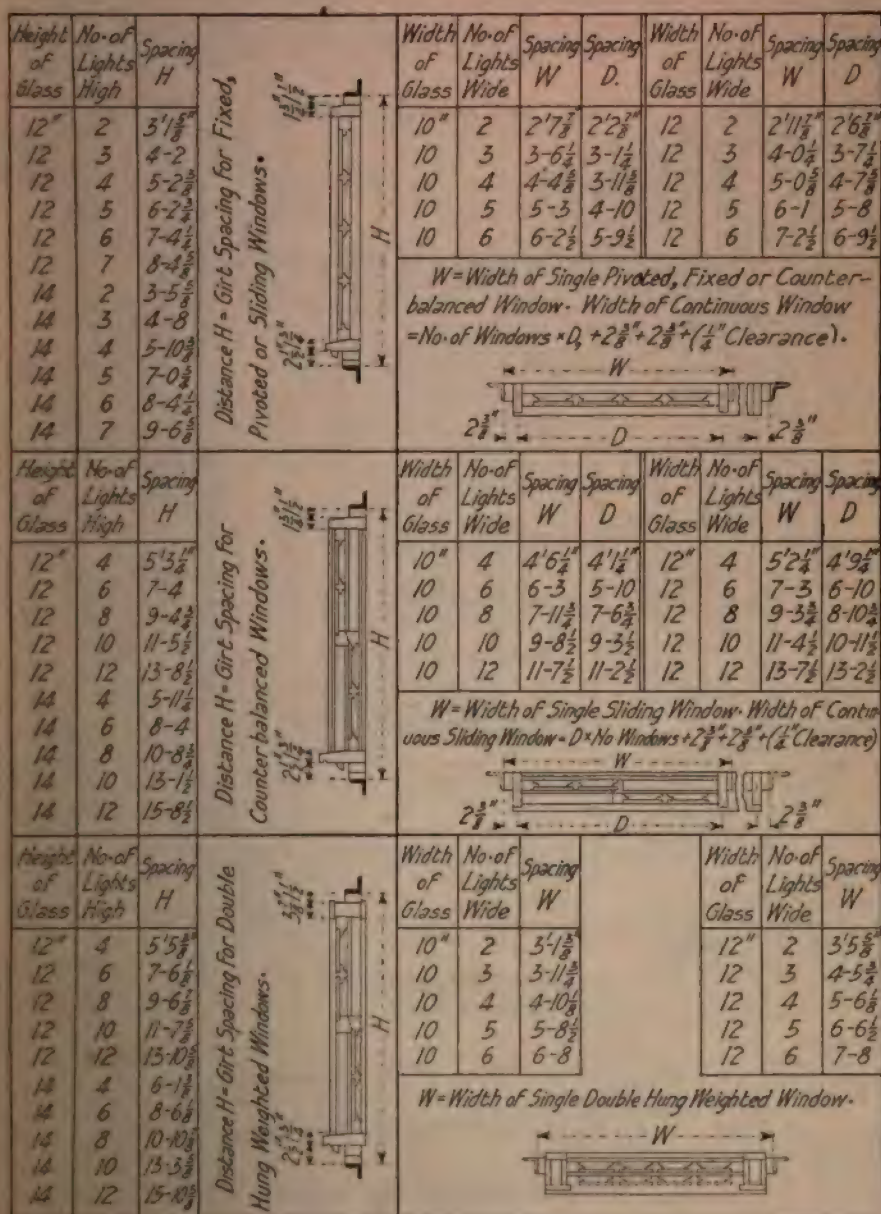 Height of Glass | No. of Lights High | Spacing H
12" | 2 | 3'1⅝"
12 | 3 | 4-2
12 | 4 | 5-2⅝
12 | 5 | 6-2¾
12 | 6 | 7-4½
12 | 7 | 8-4⅝
14 | 2 | 3-5⅝
14 | 3 | 4-8
14 | 4 | 5-10⅝
14 | 5 | 7-0¾
14 | 6 | 8-4½
14 | 7 | 9-6⅝
Distance H = Girt Spacing for Fixed,
Pivoted or Sliding Windows.
H
Width of Glass | No. of Lights Wide | Spacing W | Spacing D. | Width of Glass | No. of Lights Wide | Spacing W | Spacing D
10" | 2 | 2'7⅞" | 2'2⅞" | 12 | 2 | 2'11⅞" | 2'6⅞"
10 | 3 | 3-6¼ | 3-1¼ | 12 | 3 | 4-0¼ | 3-7¼
10 | 4 | 4-4⅝ | 3-11⅝ | 12 | 4 | 5-0⅝ | 4-7⅝
10 | 5 | 5-3 | 4-10 | 12 | 5 | 6-1 | 5-8
10 | 6 | 6-2½ | 5-9½ | 12 | 6 | 7-2½ | 6-9½
W = Width of Single Pivoted, Fixed or Counter-
balanced Window. Width of Continuous Window
= No. of Windows × D, + 2⅜" + 2⅜" + (¼" Clearance).
W
2⅜" D 2⅜"
Height of Glass | No. of Lights High | Spacing H
12" | 4 | 5'3¼"
12 | 6 | 7-4
12 | 8 | 9-4¾
12 | 10 | 11-5½
12 | 12 | 13-8½
14 | 4 | 5-11¼
14 | 6 | 8-4
14 | 8 | 10-8¾
14 | 10 | 13-1½
14 | 12 | 15-8½
Distance H = Girt Spacing for
Counterbalanced Windows.
H
Width of Glass | No. of Lights Wide | Spacing W | Spacing D | Width of Glass | No. of Lights Wide | Spacing W | Spacing D
10" | 4 | 4'6¼" | 4'1¼" | 12" | 4 | 5'2¼" | 4'9¼"
10 | 6 | 6-3 | 5-10 | 12 | 6 | 7-3 | 6-10
10 | 8 | 7-11¾ | 7-6¾ | 12 | 8 | 9-3¾ | 8-10¾
10 | 10 | 9-8½ | 9-3½ | 12 | 10 | 11-4½ | 10-11½
10 | 12 | 11-7½ | 11-2½ | 12 | 12 | 13-7½ | 13-2½
W = Width of Single Sliding Window. Width of Contin-
uous Sliding Window = D × No Windows + 2⅜" + 2⅜" + (¼" Clearance)
W
2⅜" D 2⅜"
Height of Glass | No. of Lights High | Spacing H
12" | 4 | 5'5⅜"
12 | 6 | 7-6⅛
12 | 8 | 9-6⅞
12 | 10 | 11-7⅝
12 | 12 | 13-10⅝
14 | 4
14 | 6 | 8-6⅛
14 | 8 | 10-10⅞
14 | 10 | 13-3⅝
14 | 12 | 15-10⅝
Distance H = Girt Spacing for Double
Hung Weighted Windows.
H
Width of Glass | No. of Lights Wide | Spacing W | Width of Glass | No. of Lights Wide | Spacing W
10" | 2 | 3'-1⅜" | 12" | 2 | 3'5⅝"
10 | 3 | 3-11¾ | 12 | 3 | 4-5¾
10 | 4 | 4-10⅛ | 12 | 4 | 5-6⅛
10 | 5 | 5-8½ | 12 | 5 | 6-6½
10 | 6 | 6-8 | 12 | 6 | 7-8
W = Width of Single Double Hung Weighted Window.
W